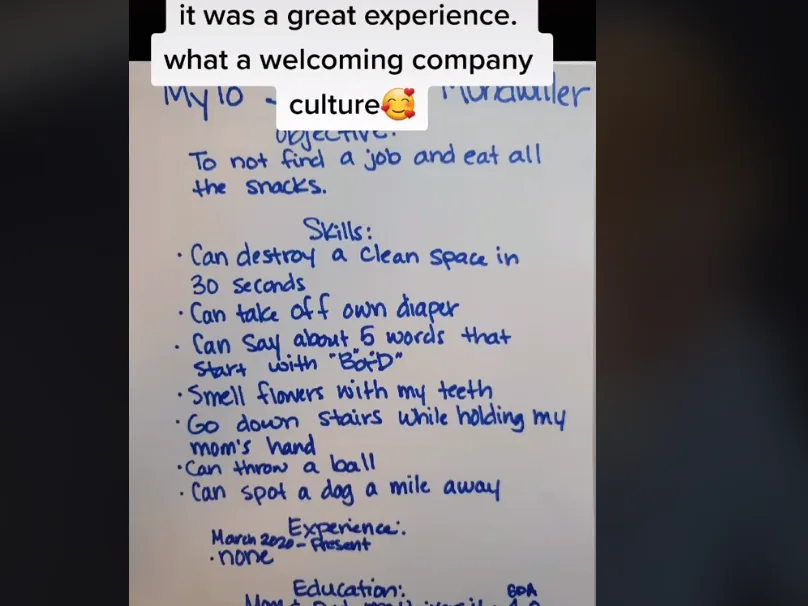 it was a great experience.
what a welcoming company
culture🥰
Mylo
Objective:
To not find a job and eat all
the snacks.
Skills:
· Can destroy a clean space in
30 seconds
· Can take off own diaper
· Can say about 5 words that
start with "B" or "D"
· Smell flowers with my teeth
· Go down stairs while holding my
mom's hand
· Can throw a ball
· Can spot a dog a mile away
Experience:
March 2020 - Present
· none
Education: